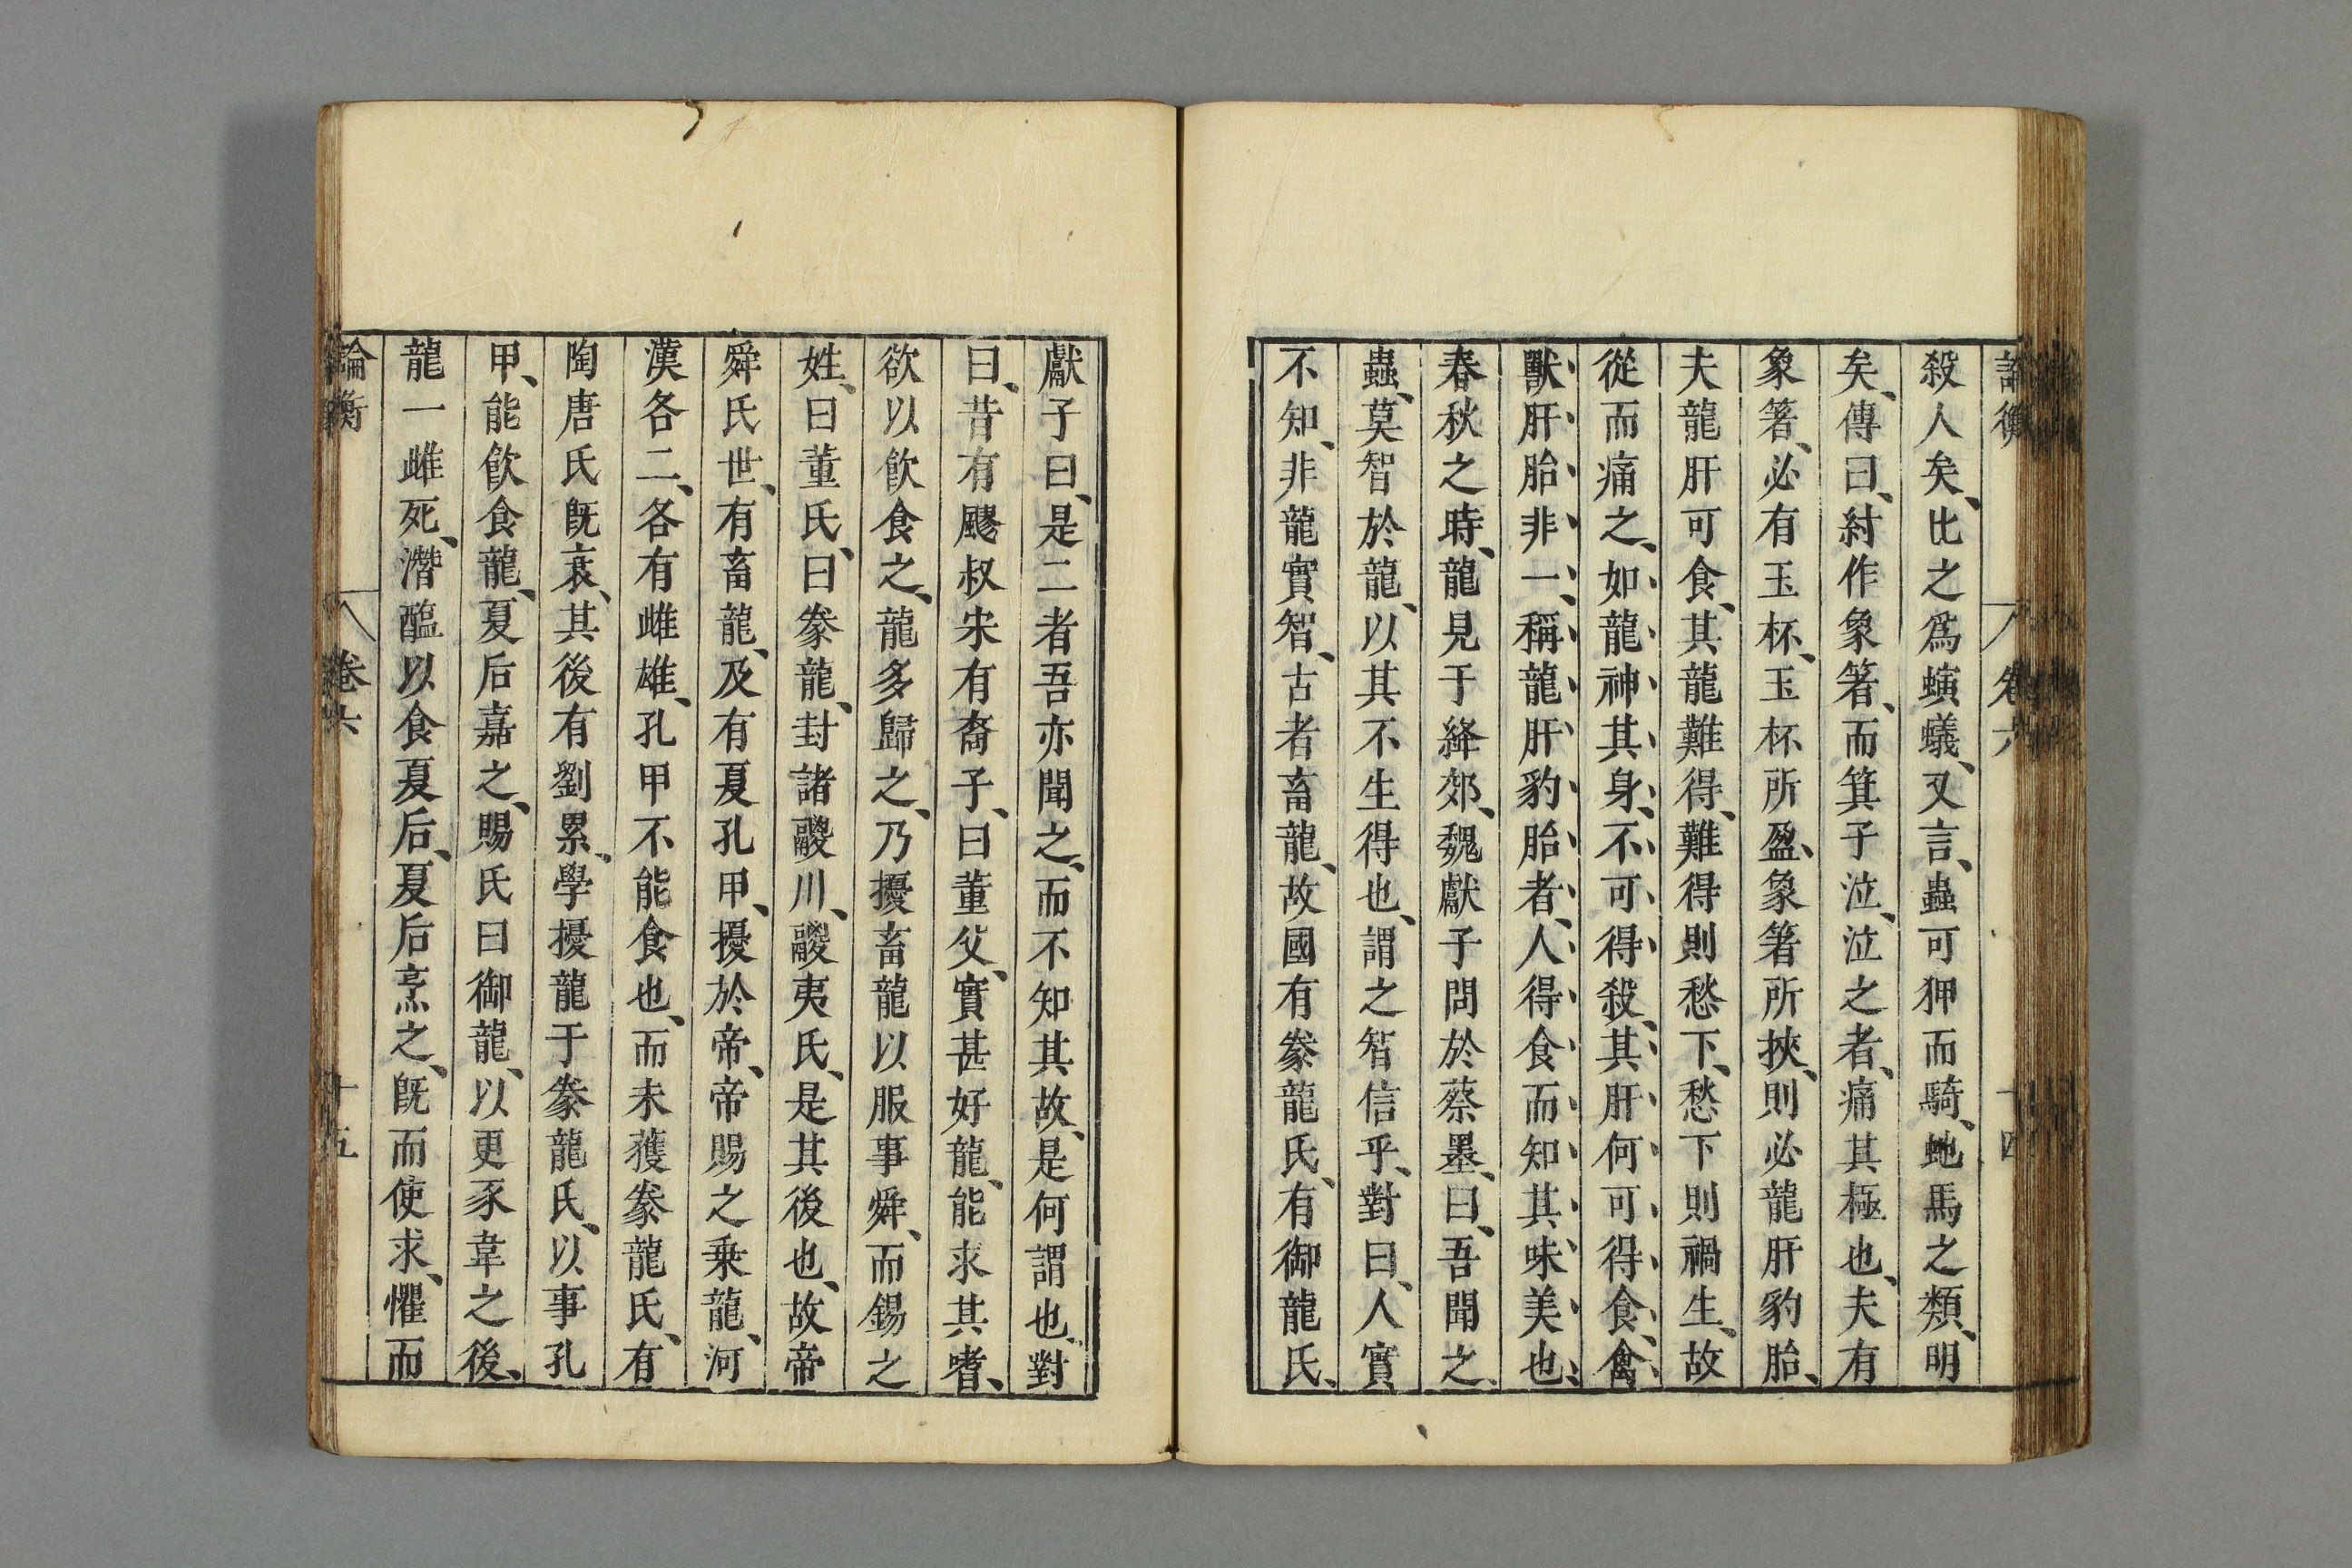 論衡 卷六 十四
殺人矣、比之爲螾蟻、又言、蟲可狎而騎、虵馬之類、明
矣、傳曰、紂作象箸、而箕子泣、泣之者、痛其極也、夫有
象箸、必有玉杯、玉杯所盈、象箸所挾、則必龍肝豹胎、
夫龍肝可食、其龍難得、難得則愁下、愁下則禍生、故
從而痛之、如龍神其身、不可得殺、其肝何可得食、禽
獸肝胎非一、稱龍肝豹胎者、人得食而知其味美也、
春秋之時、龍見于絳郊、魏獻子問於蔡墨、曰、吾聞之、
蟲、莫智於龍、以其不生得也、謂之智信乎、對曰、人實
不知、非龍實智、古者畜龍、故國有豢龍氏、有御龍氏、
獻子曰、是二者吾亦聞之、而不知其故、是何謂也、對
曰、昔有飂叔宋有裔子、曰董父、實甚好龍、能求其嗜、
欲以飮食之、龍多歸之、乃擾畜龍以服事舜、而錫之
姓、曰董氏、曰豢龍、封諸鬷川、鬷夷氏、是其後也、故帝
舜氏世、有畜龍、及有夏孔甲、擾於帝、帝賜之乗龍、河
漢各二、各有雌雄、孔甲不能食也、而未獲豢龍氏、有
陶唐氏旣衰、其後有劉累、學擾龍于豢龍氏、以事孔
甲、能飮食龍、夏后嘉之、賜氏曰御龍、以更豕韋之後、
龍一雌死、潛醢以食夏后、夏后烹之、旣而使求、懼而
論衡 卷六 十五